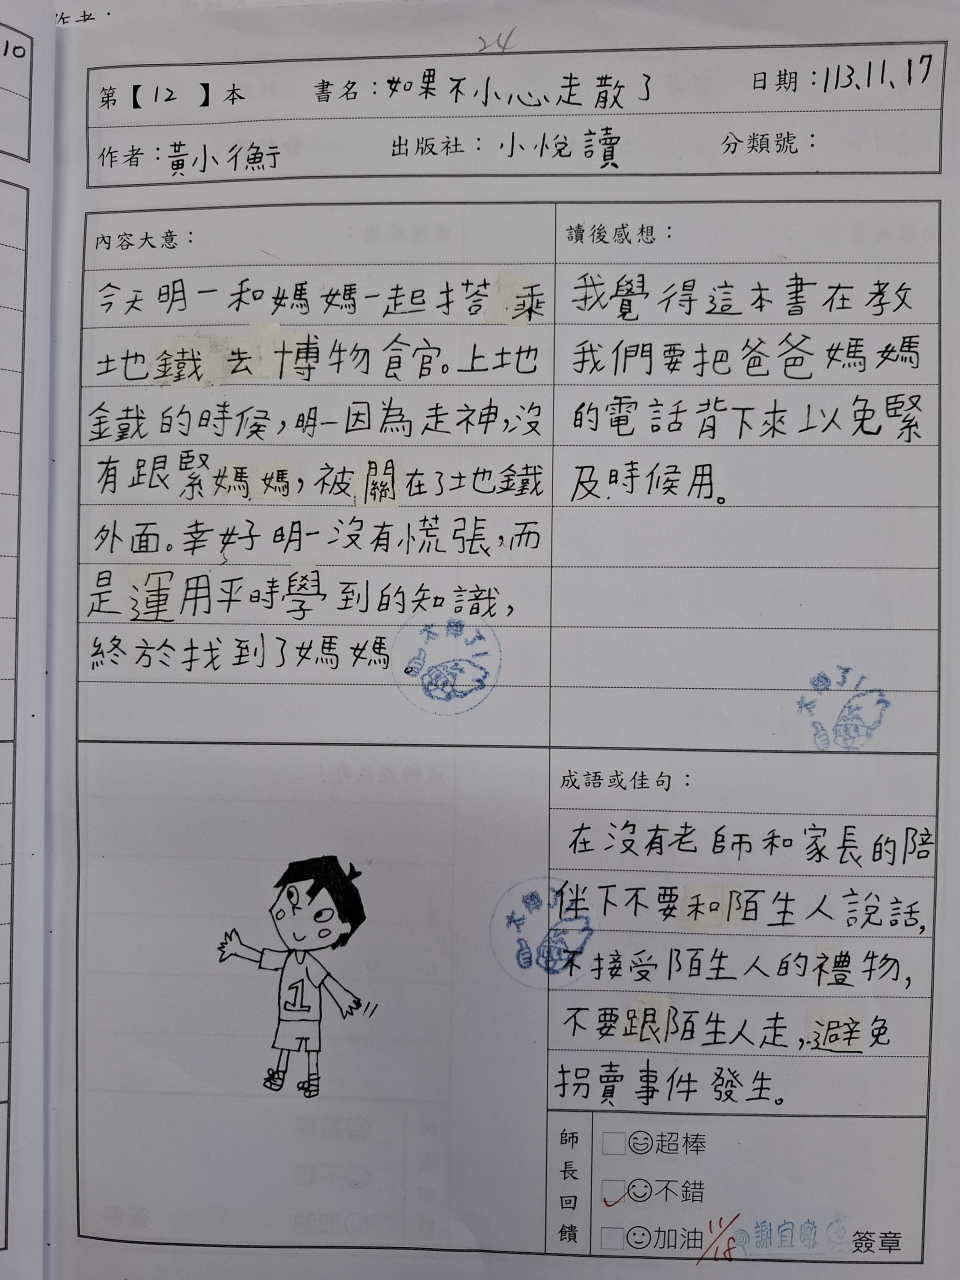 10
作者：
24
第【12】本　書名：如果不小心走散了　日期：113.11.17
作者：黃小衡　出版社：小悅讀　分類號：
內容大意：
今天明一和媽媽一起搭乘
地鐵去博物食官。上地
鐵的時候，明一因為走神，沒
有跟緊媽媽，被關在了地鐵
外面。幸好明一沒有慌張，而
是運用平時學到的知識，
終於找到了媽媽。
太棒了！
讀後感想：
我覺得這本書在教
我們要把爸爸媽媽
的電話背下來以免緊
及時候用。
太棒了！
1
成語或佳句：
在沒有老師和家長的陪
伴下不要和陌生人說話，
不接受陌生人的禮物，
不要跟陌生人走，避免
拐賣事件發生。
太棒了！
師長回饋
超棒
不錯
加油 11/18 謝宜 簽章